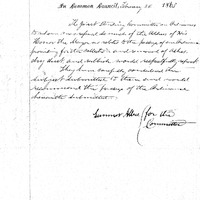 In Common Council, February 26 1865
The Joint Standing Committee on Ordinances
to whom was referred so much of the Address of His
Honor the Mayor as relates to the passage of an Ordinance
providing for the collection and removal of ashes
dry dust and rubbish would respectfully report
They have carefully considered the
subject submitted to them and would
recommend the passage of the Ordinance
herewith submitted.
for the
Committee